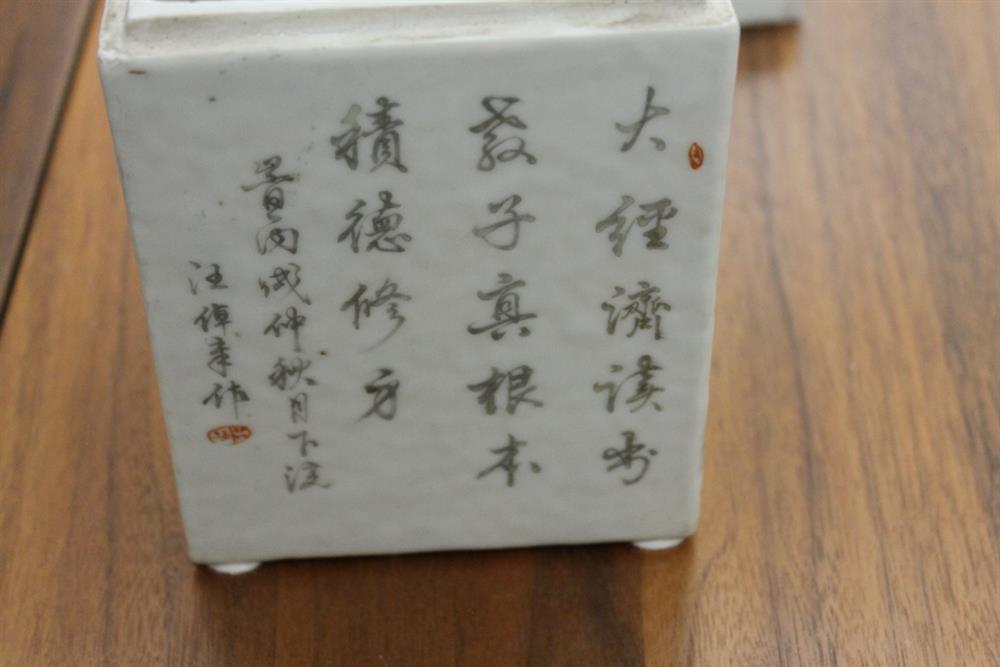 大經濟讀書
教子真根本
積德修身
時丙戌仲秋月下浣
汪倬章作